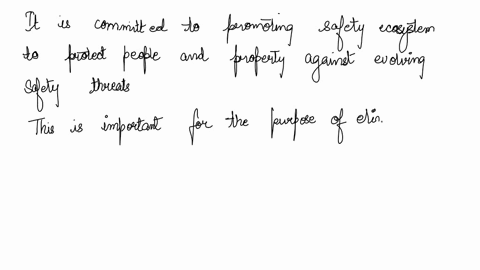 It is committed to promoting safety ecosystem
to protect people and property against evolving
safety threats
This is important for the purpose of elin.